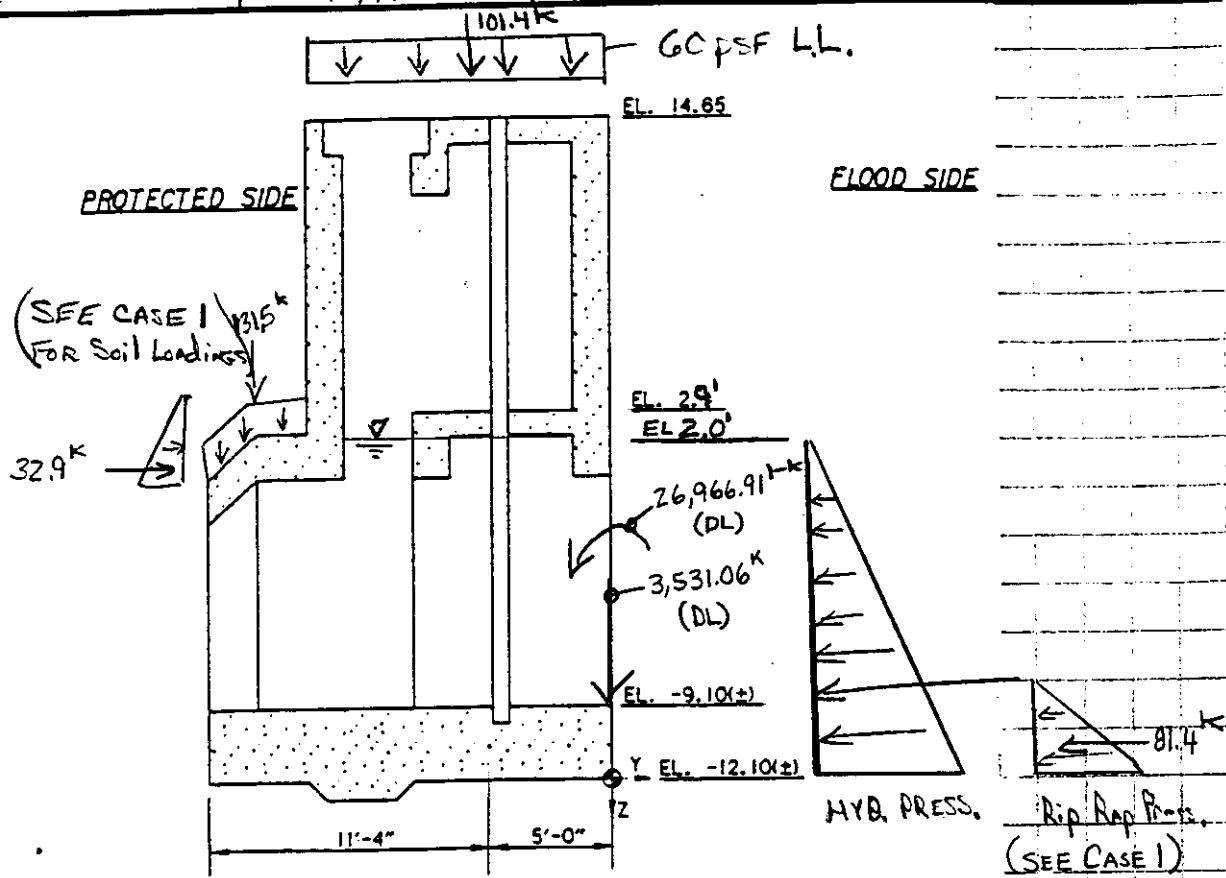 101.4K
60 PSF L.L.
EL. 14.65
PROTECTED SIDE
FLOOD SIDE
(SEE CASE 1
FOR Soil Loadings)
131.5K
EL. 2.9'
EL 2.0'
32.9K
26,966.91'-K
(DL)
3,531.06K
(DL)
EL. -9.10(±)
81.4K
Y
EL. -12.10(±)
Z
HYD. PRESS.
Rip Rap Press.
(SEE CASE 1)
11'-4"
5'-0"